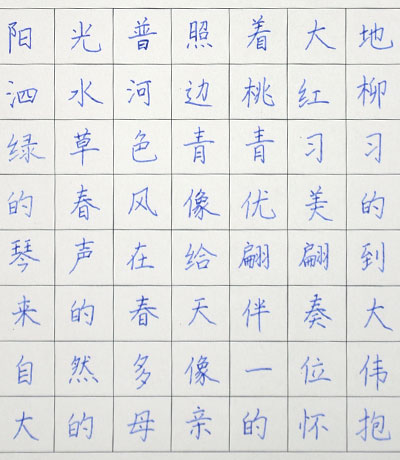 阳光普照着大地
泗水河边桃红柳
绿草色青青习习
的春风像优美的
琴声在给翩翩到
来的春天伴奏大
自然多像一位伟
大的母亲的怀抱